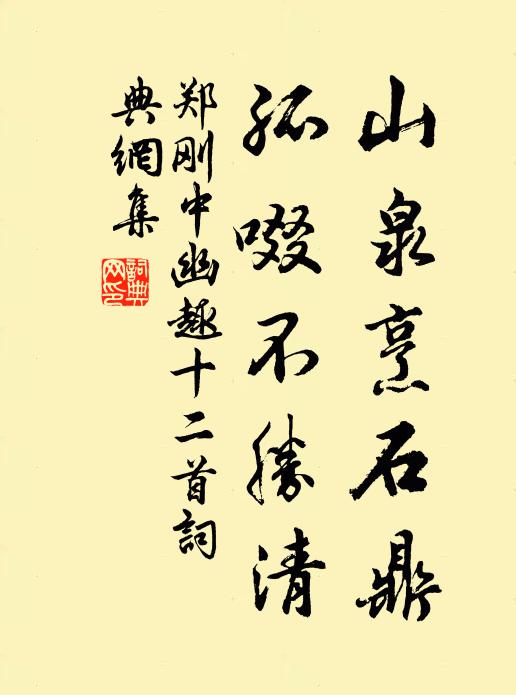 山泉烹石鼎
孤啜不勝清
郑刚中幽趣十二首詞
典網集
詞典
网印